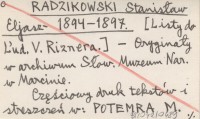 RADZIKOWSKI Stanisław
Eljasz - 1894-1897. [Listy do
Ľud. V. Riznera.] - Oryginały
w archiwum Słow. Muzeum Nar.
w Marcinie.
Częściowy druk tekstów i
streszczeń w: POTEMRA, M.